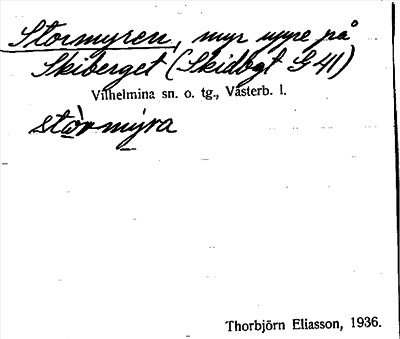 Stormyren, myr uppe på
Skiberget (Skidbgt G 41)
Vilhelmina sn. o. tg., Västerb. l.
stòrmýra
Thorbjörn Eliasson, 1936.